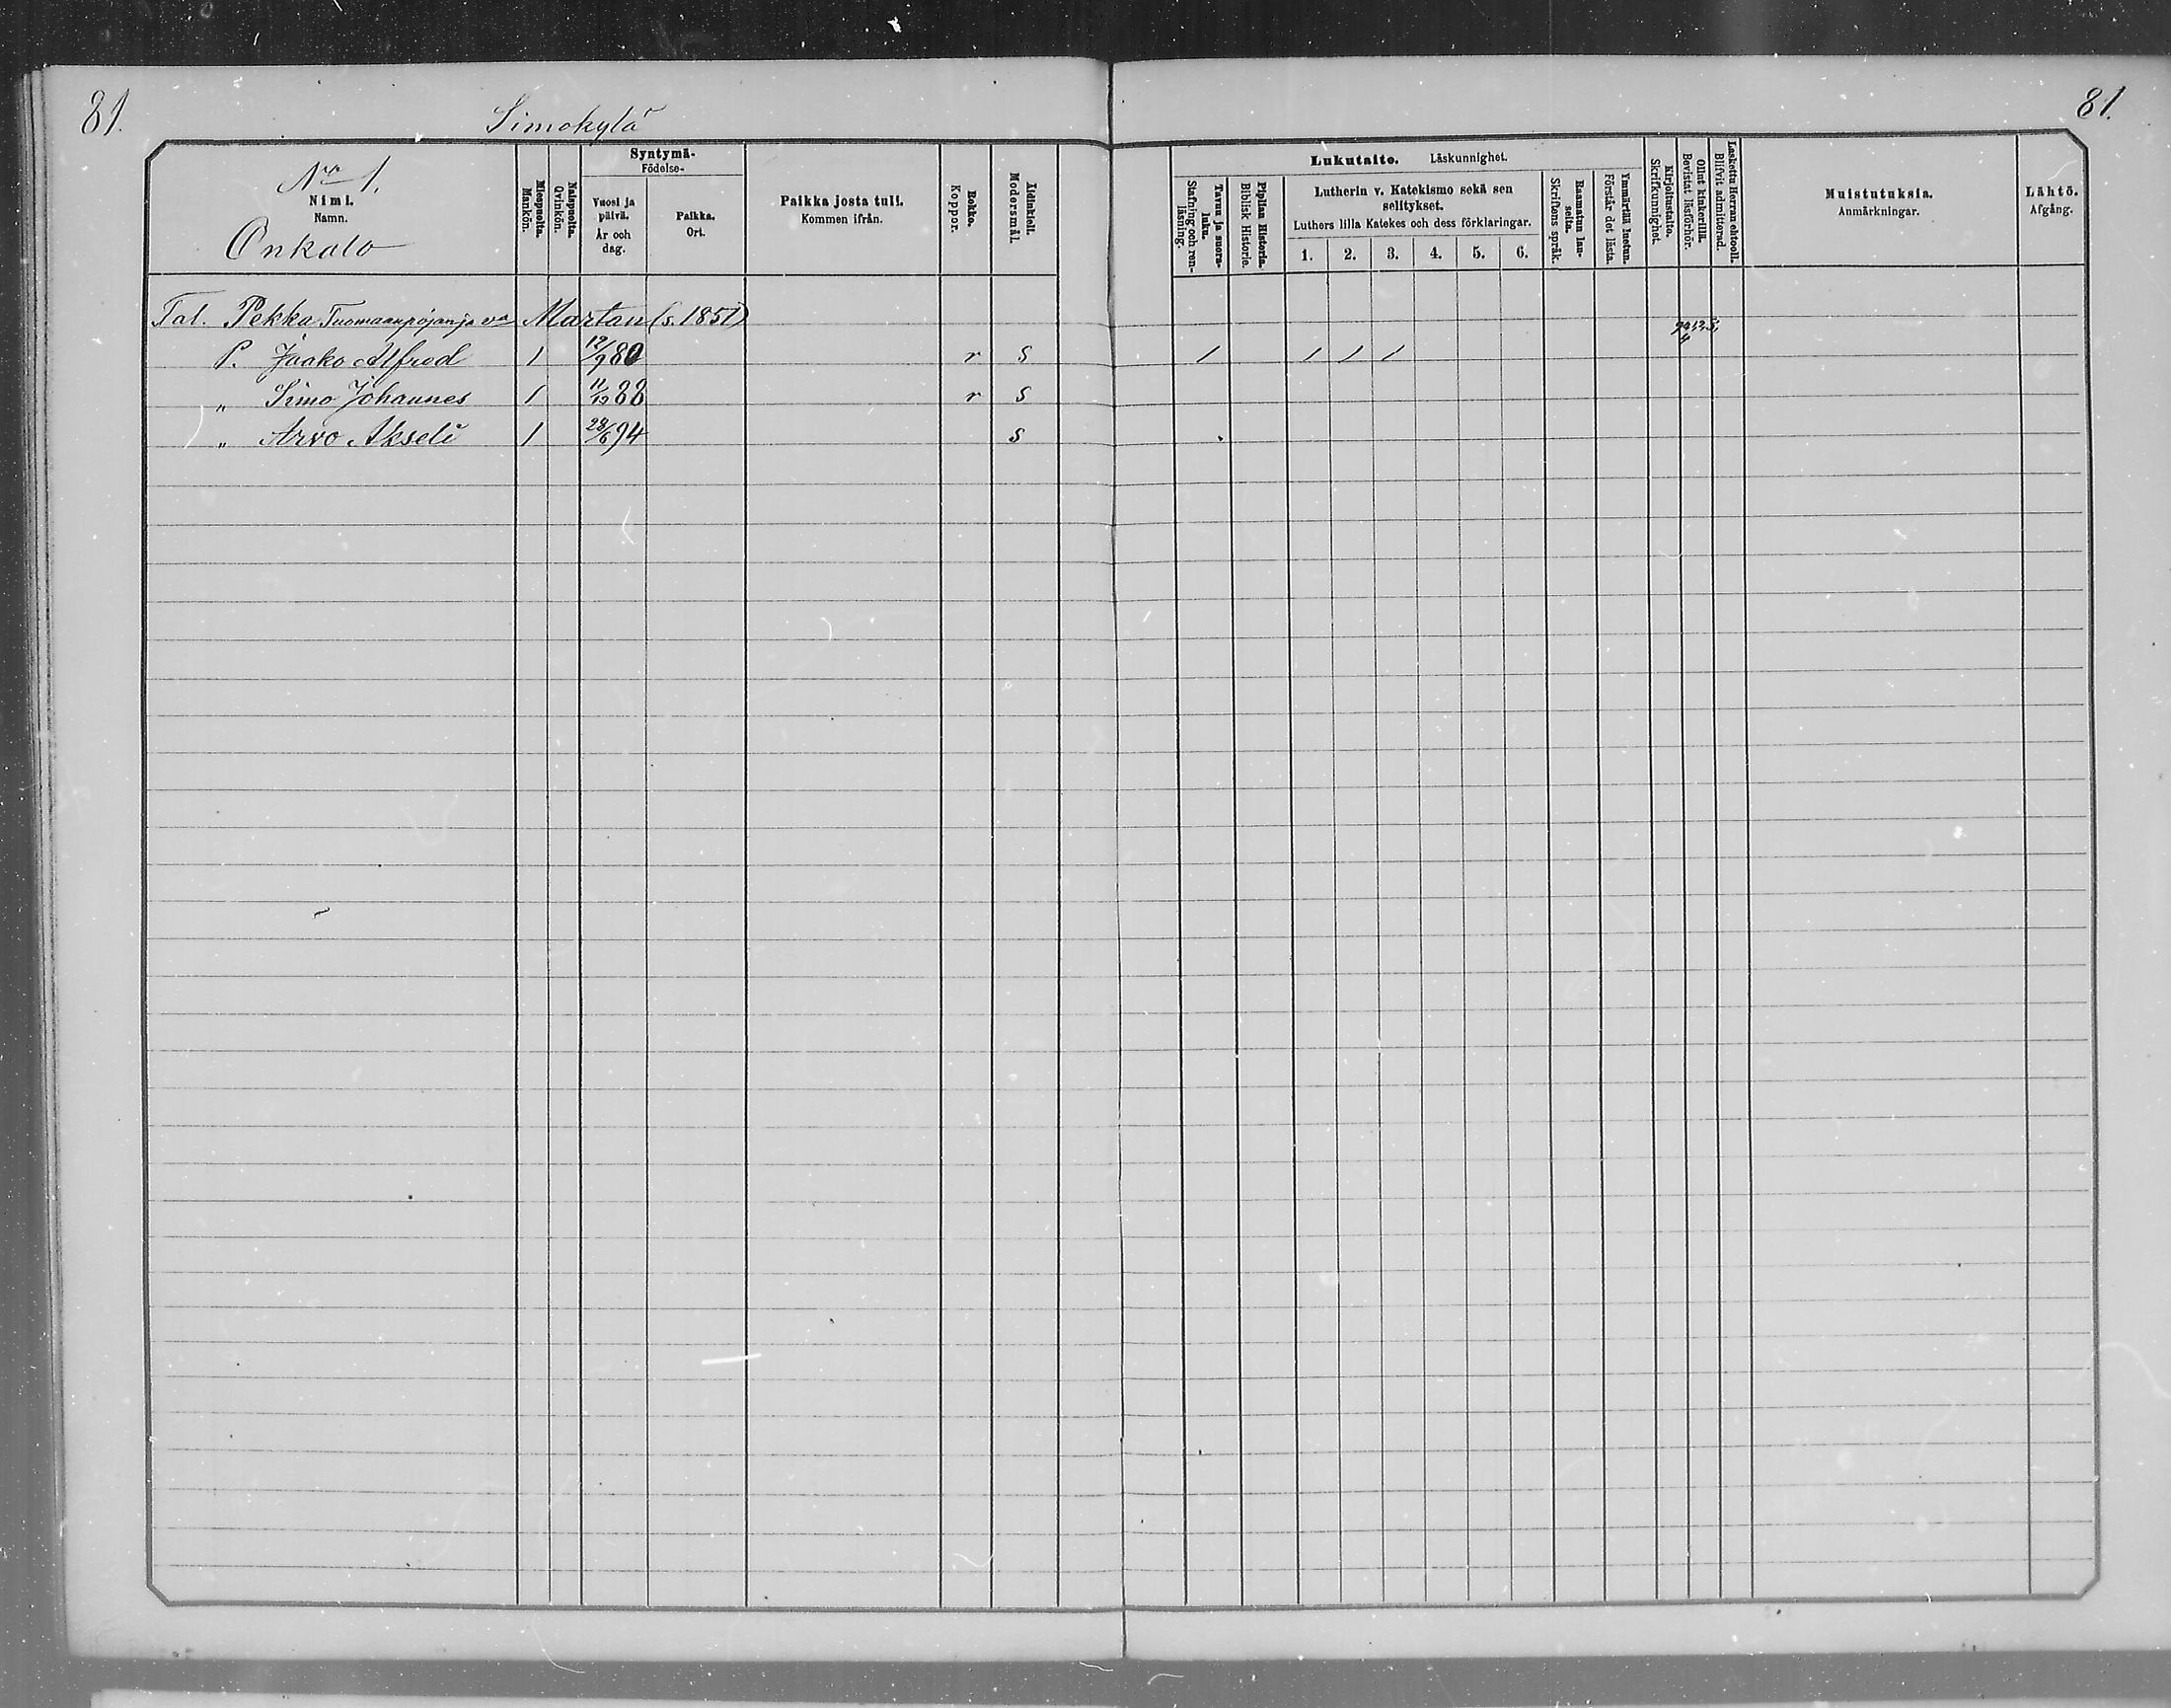 81.
Simokylä
81.
No 1.
Nimi.
Namn.
Onkalo
Miespuolta.
Mankön.
Naispuolta.
Qvinkön.
Syntymä-
Födelse-
Vuosi ja päivä.
År och dag.
Paikka.
Ort.
Paikka josta tuli.
Kommen ifrån.
Rokko.
Koppor.
Äidinkieli.
Modersmål.
Lukutaito. Läskunnighet.
Tavuu ja suora-luku.
Stafning och ren-läsning.
Piplian Historia.
Biblisk Historie.
Lutherin v. Katekismo sekä sen
selitykset.
Luthers lilla Katekes och dess förklaringar.
1. 2. 3. 4. 5. 6.
Raamatun lau-seita.
Skriftens språk.
Ymmärtää luetun.
Förstår det lästa.
Kirjoitustaito.
Skrifkunnighet.
Ollut kinkerillä.
Bevistat läsförhör.
Laskettu Herran ehtooll.
Blifvit admitterad.
Muistutuksia.
Anmärkningar.
Lähtö.
Afgång.
Tal. Pekka Tuomaanpojan ja va Martan (s. 1851)
P. Jaako Alfred 1 12/9 80 r S / / / /
„ Simo Johannes 1 11/12 88 r S
„ Arvo Akseli 1 28/6 94 S